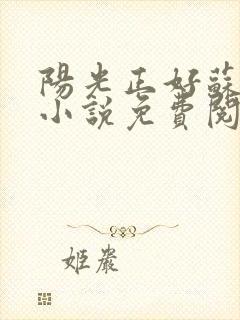 陽光正好蘇
小說免費閱
姬嚴